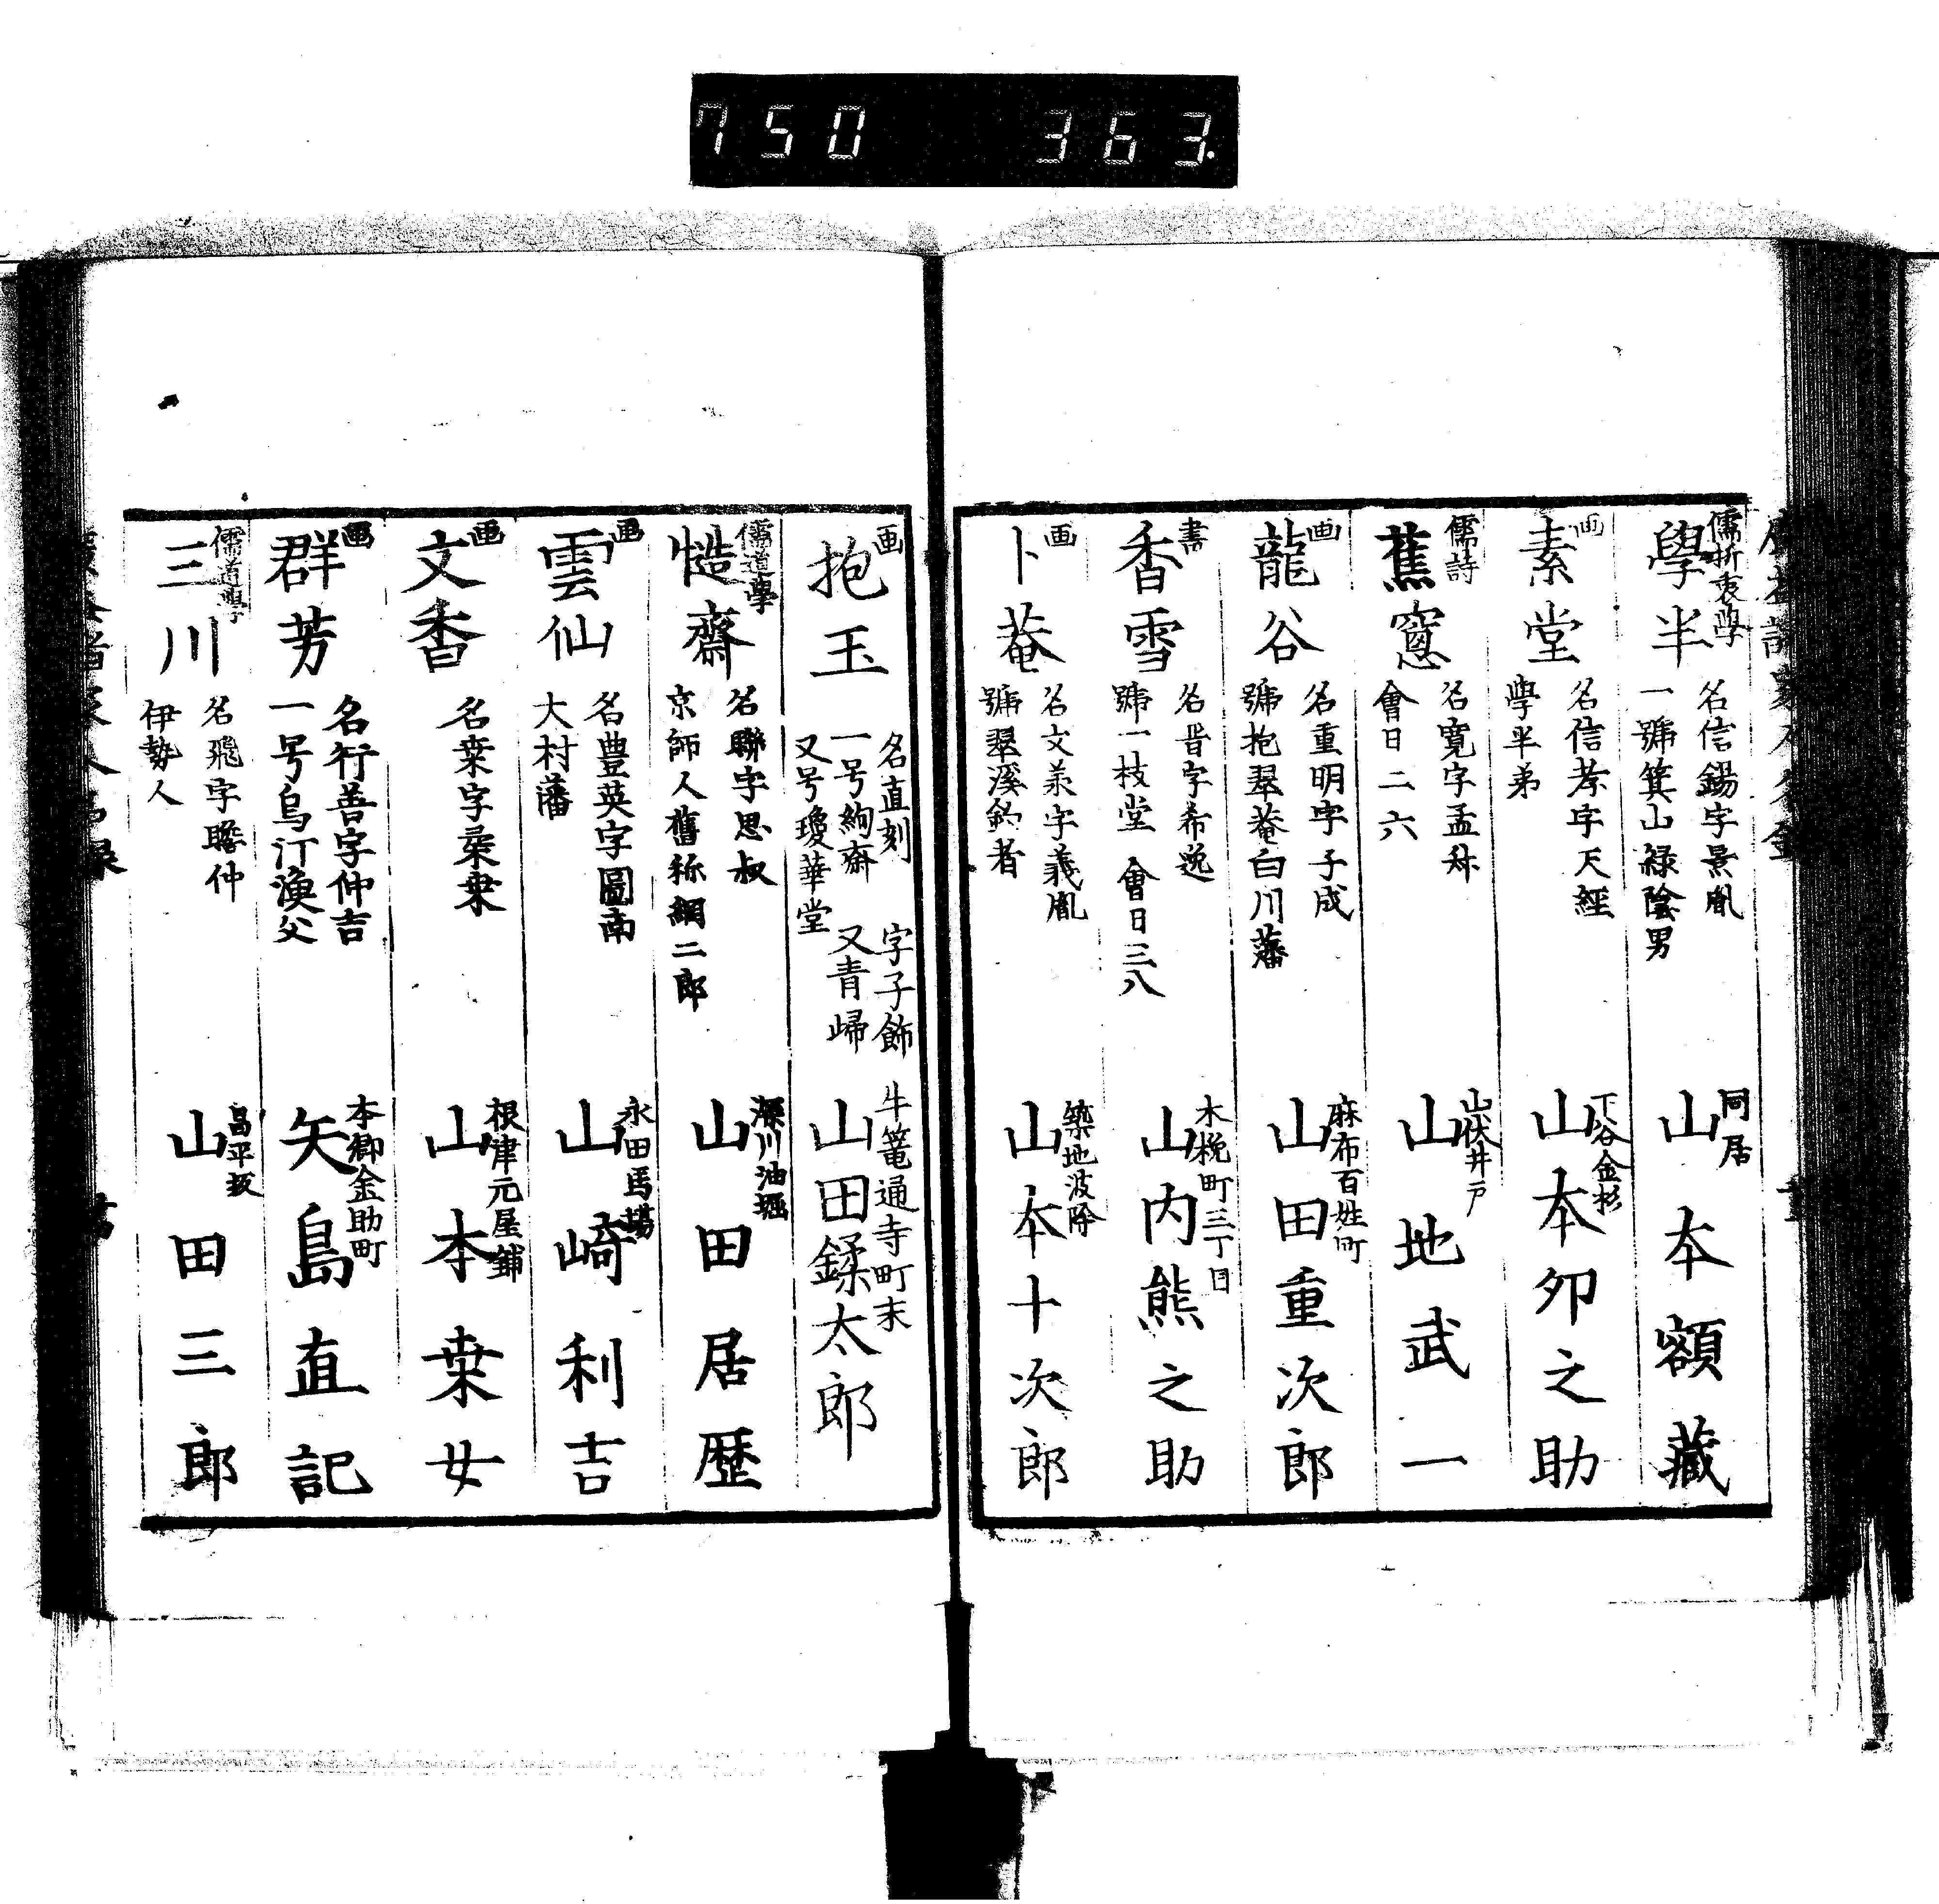 750 363.
儒折衷學
學半
名信錫字景胤
一號箕山緑陰男
同居
山本額藏
画
素堂
名信孝字天經
學半弟
下谷金杉
山本卯之助
儒詩
蕉窻
名寬字孟栋
會日二六
山伏井戸
山地武一
画
龍谷
名重明字子成
號抱翠菴白川藩
麻布百姓町
山田重次郎
書
香雪
名晋字希逸
號一枝堂 會日三八
木挽町三丁目
山内熊之助
画
卜菴
名文羕字義胤
號翠溪釣者
築地波除
山本十次郎
画
抱玉
名直刻 字子飾
一号絢齋 又青歸
又号瓊華堂
牛篭通寺町末
山田鍒太郎
儒道學
慥齋
名聯字思叔
京師人舊称綱二郎
深川油堀
山田居歴
画
雲仙
名豊英字圖南
大村藩
永田馬場
山崎利吉
画
文香
根津元屋舗
山本桒女
画
群芳
名行善字仲吉
一号烏汀漁父
本郷金助町
矢島直記
儒道學
三川
名飛字聸仲
伊勢人
昌平坂
山田三郎